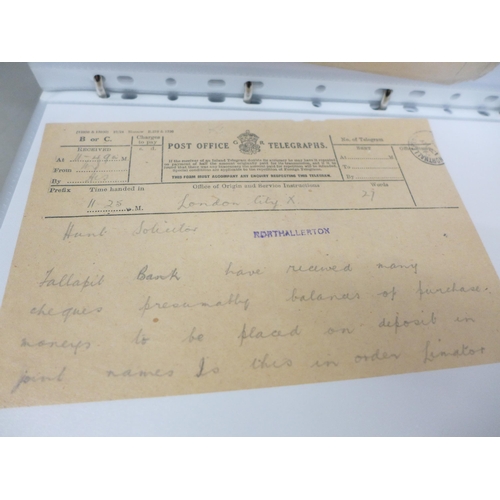 B or C.
Charges to pay
RECEIVED
POST OFFICE TELEGRAPHS.
No. of Telegram
At 11-49 A.M
From
By
THIS FORM MUST ACCOMPANY ANY INQUIRY RESPECTING THIS TELEGRAM.
Prefix Time handed in Office of Origin and Service Instructions Words
11-25 M. London City X 29
Hunt Solicitor
NORTHALLERTON
Bank have received many
cheques presumably balands of purchase
moneys to be placed on deposit in
joint names Is this in order